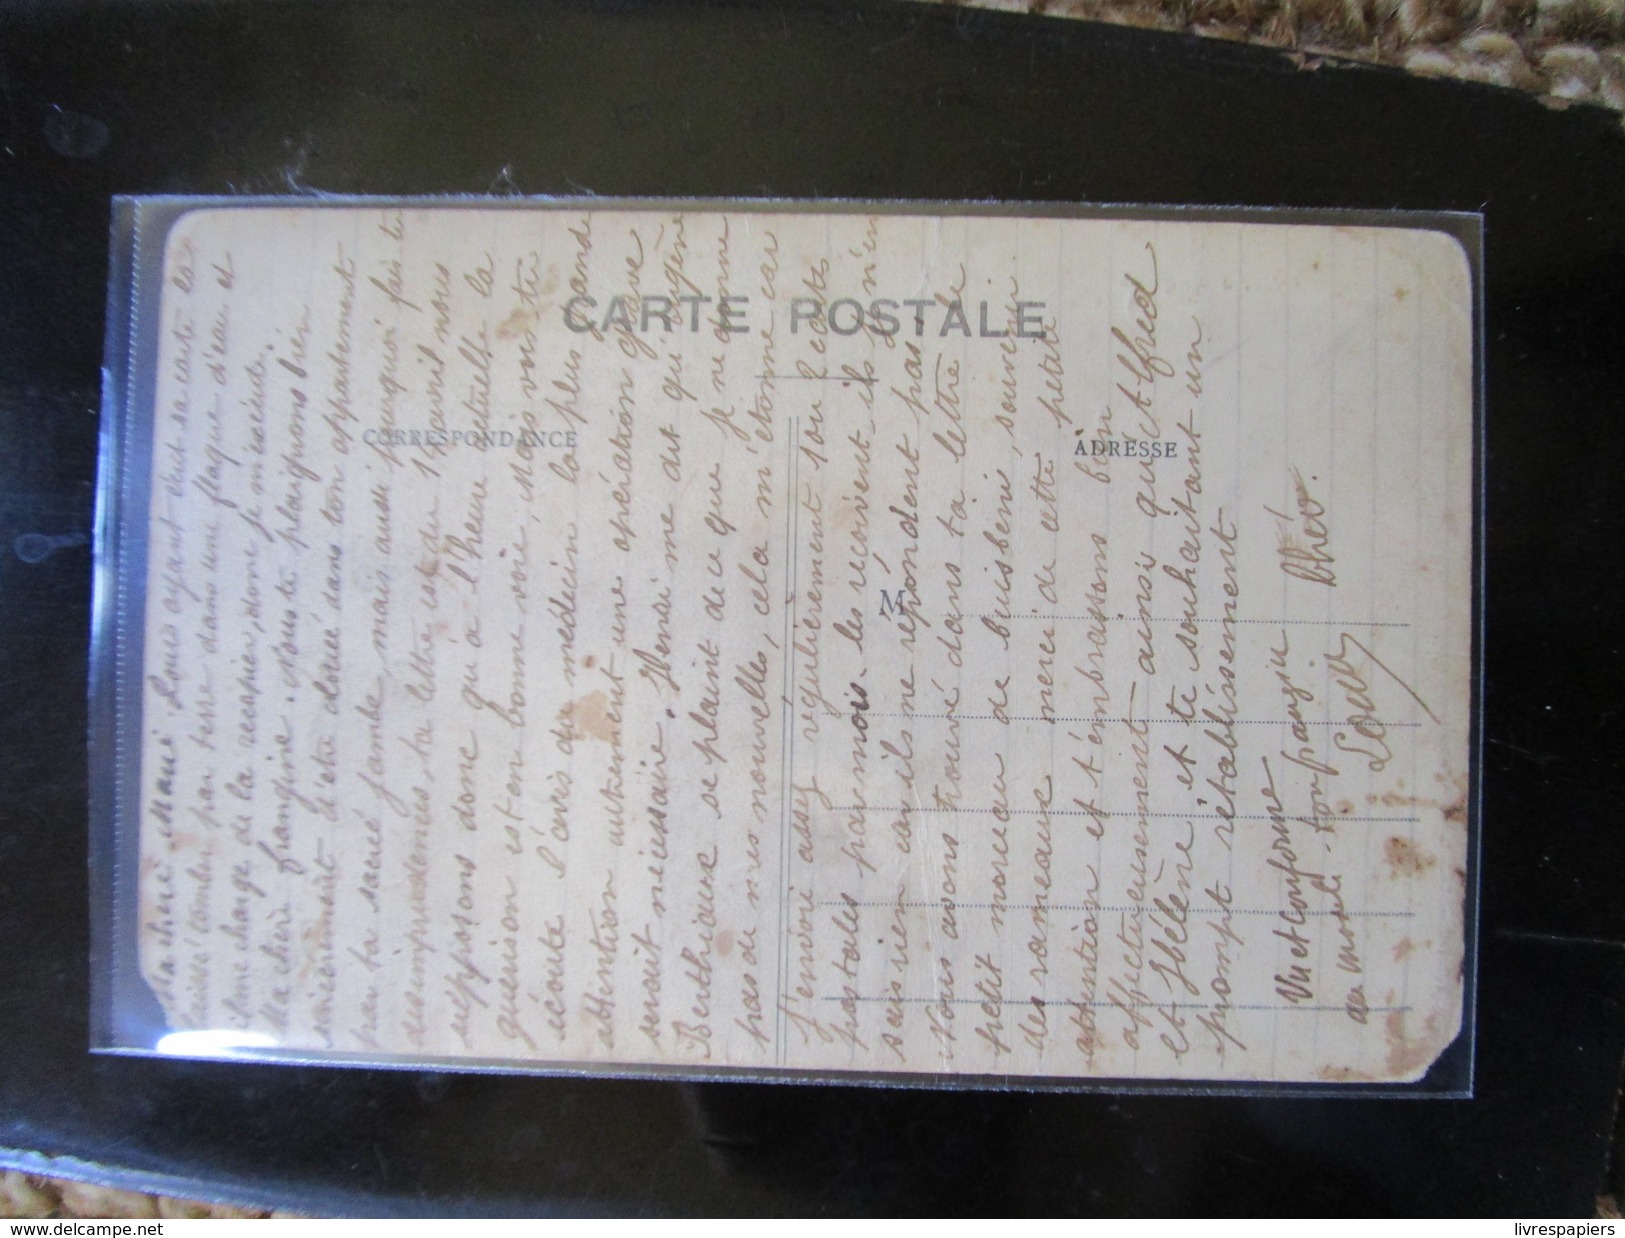 CARTE POSTALE
CORRESPONDANCE
ADRESSE
M
Ma chère Marie Louis ayant écrit sa carte la
laissé tomber par terre dans une flaque d'eau et
il me charge de la recopier, donc je m'éxécute.
Ma chère frangine. Nous te plaignons bien
sincèrement d'être clouée dans ton appartement
par ta sacré jambe, mais aussi pourquoi fais tu
des imprudences, ta lettre est du 14 avril nous
supposons donc qu'à l'heure actuelle la
guérison est en bonne voie, Mais
écoute l'avis du médecin la plus grande
attention autrement une opération grave
serait nécessaire. Henri me dit qu'
Berthieuse se plaint de ce que je ne donne
pas de mes nouvelles, cela m'étonne car
j'envoie assez régulièrement 1 ou 2 cartes
postales par mois. les recoivent-ils, je n'en
sais rien car ils ne répondent pas.
Nous avons trouvé dans ta lettre le
petit morceau de buis béni, souvenir
des rameaux merci de cette petite
attention et t'embrassons bien
affectueusement ainsi qu'Alfred
et Hélène et te souhaitant un
prompt rétablissement
Vu et conforme
au model. ton frangin Théo.
Louis
www.delcampe.net
livrespapiers